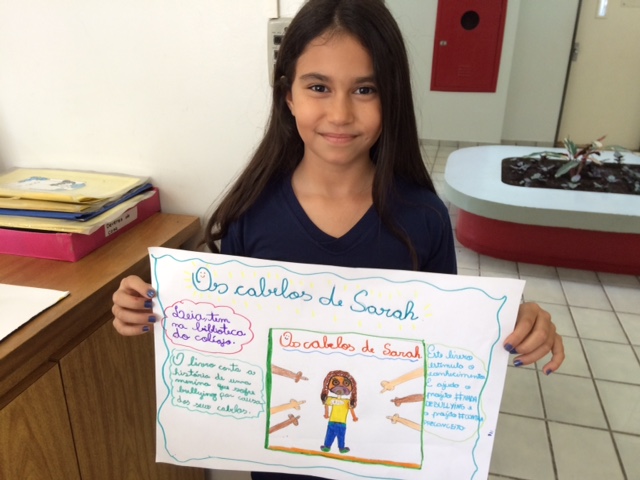 Os cabelos de Sarah
Leia, tem
na biblioteca
do colégio.
O livro conta a
história de uma
menina que sofre
bullying por causa
dos seus cabelos.
Os cabelos de Sarah
Este livro
estimula o
conhecimento
E ajuda o
projeto #NADA
DE BULLYING e
o projeto #CONTRA
PRECONCEITO